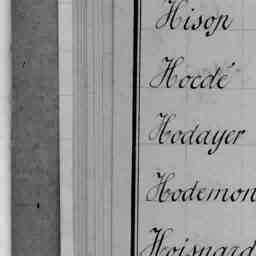 Hison
Hocdé
Hodayer
Hodemon
Hoisnard